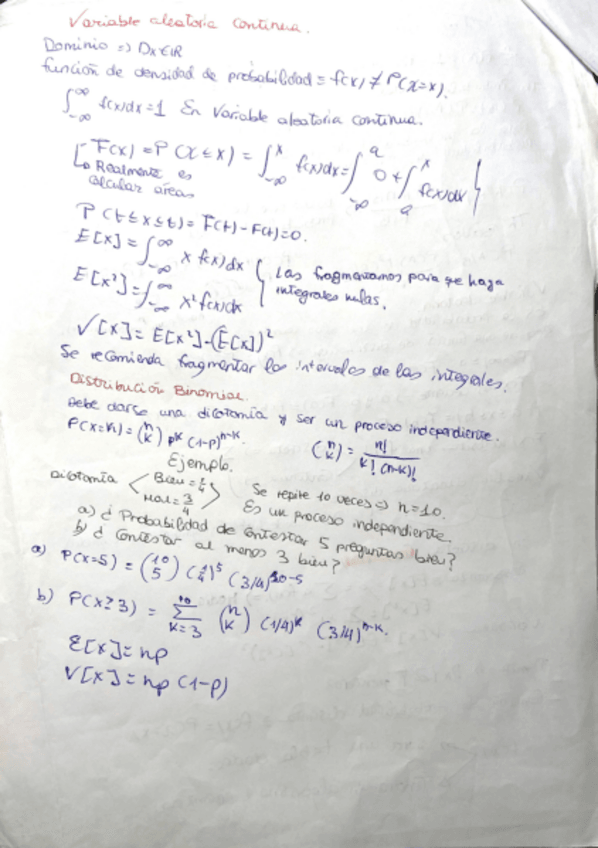 Variable aleatoria continua.
Dominio => Dx∈ℝ
función de densidad de probabilidad = f(x) ≠ P(X=x).
∫_{-∞}^{∞} f(x)dx=1 En Variable aleatoria continua.
F(x) = P(X≤x) = ∫_{-∞}^{x} f(x)dx = ∫_{-∞}^{a} 0 + ∫_{a}^{x} f(x)dx
↳ Realmente es
calcular áreas
P(t≤x≤t) = F(t)-F(t)=0.
E[x] = ∫_{-∞}^{∞} x f(x)dx
E[x²] = ∫_{-∞}^{∞} x² f(x)dx } Las fragmentamos para que haya
integrales nulas.
V[x] = E[x²]-(E[x])²
Se recomienda fragmentar los intervalos de las integrales.
Distribución Binomial.
Debe darse una dicotomía y ser un proceso independiente.
P(x=k) = (n k) p^k (1-p)^{n-k}. (n k) = n! / k!(n-k)!
Ejemplo.
Dicotomía < Bien = 1/4
Mal = 3/4 > Se repite 10 veces => n=10.
Es un proceso independiente.
a) ¿Probabilidad de contestar 5 preguntas bien?
b) ¿Contestar al menos 3 bien?
a) P(x=5) = (10 5) (1/4)^5 (3/4)^{10-5}
b) P(x≥3) = ∑_{k=3}^{10} (n k) (1/4)^k (3/4)^{n-k}.
E[x] = np
V[x] = np (1-p)